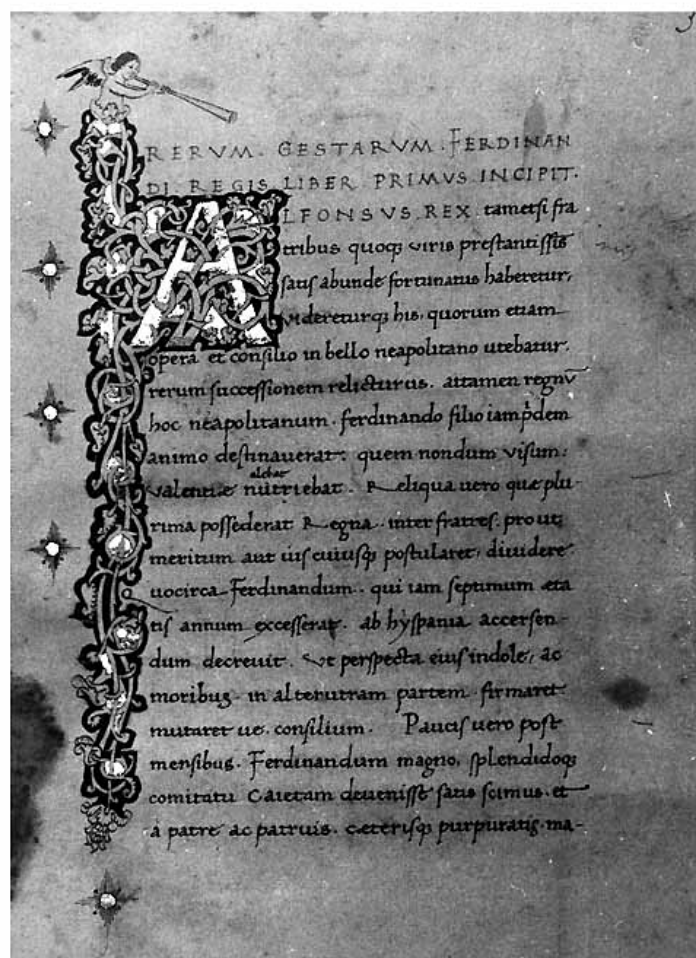 3
RERVM · GESTARVM · FERDINAN
DI · REGIS · LIBER · PRIMVS · INCIPIT ·
ALFONSVS · REX · tametsi fra
tribus quoq; viris prestantissis
satis abunde fortunatus haberetur,
videreturq; his, quorum etiam
opera et consilio in bello neapolitano utebatur.
rerum successionem relicturus. attamen regnū
hoc neapolitanum. ferdinando filio iam p̄dem
animo destinauerat: quem nondum visum:
alebat
Valentiæ nutriebat. Reliqua uero quæ plu
rima possederat Regna. inter fratres. prout
meritum aut ius cuiusq; postularet, diuidere
uocirca Ferdinandum. qui iam septimum æta
tis annum excesserat. ab hyspania accersen-
dum decreuit. Vt perspecta eius indole, ac
moribus. in alterutram partem. firmaret
mutaret ue. consilium. Paucis uero post
mensibus. Ferdinandum magno, splendidoq;
comitatu Caietam deuenisse satis scimus. et
a patre ac patruis. cæterisq; purpuratis. ma-